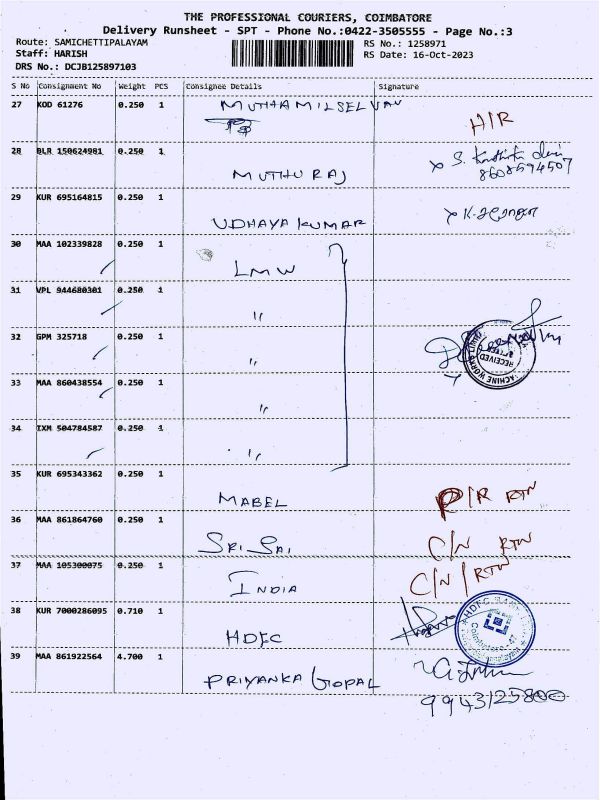 THE PROFESSIONAL COURIERS, COIMBATORE
Delivery Runsheet - SPT - Phone No.:0422-3505555 - Page No.:3
Route: SAMICHETTIPALAYAM RS No.: 1258971
Staff: HARISH RS Date: 16-Oct-2023
DRS No.: DCJB125897103
S No Consignment No Weight PCS Consignee Details Signature
27 KOD 61276 0.250 1 MUTHAMILSELVAN
H/R
28 BLR 150624981 0.250 1 MUTHURAJ
8608594507
29 KUR 695164815 0.250 1 UDHAYA KUMAR
30 MAA 102339828 0.250 1 LMW
31 VPL 944680301 0.250 1 "
32 GPM 325718 0.250 1 "
RECEIVED
33 MAA 860438554 0.250 1 "
34 IXM 504784587 0.250 1 "
35 KUR 695343362 0.250 1 MABEL R/R RTN
36 MAA 861864760 0.250 1 SRI SAI C/N RTN
37 MAA 105300075 0.250 1 INDIA C/N/RTN
38 KUR 7000286095 0.710 1 HDFC
HDFC BANK
Coimbatore - 47
39 MAA 861922564 4.700 1 PRIYANKA GOPAL
9943125800